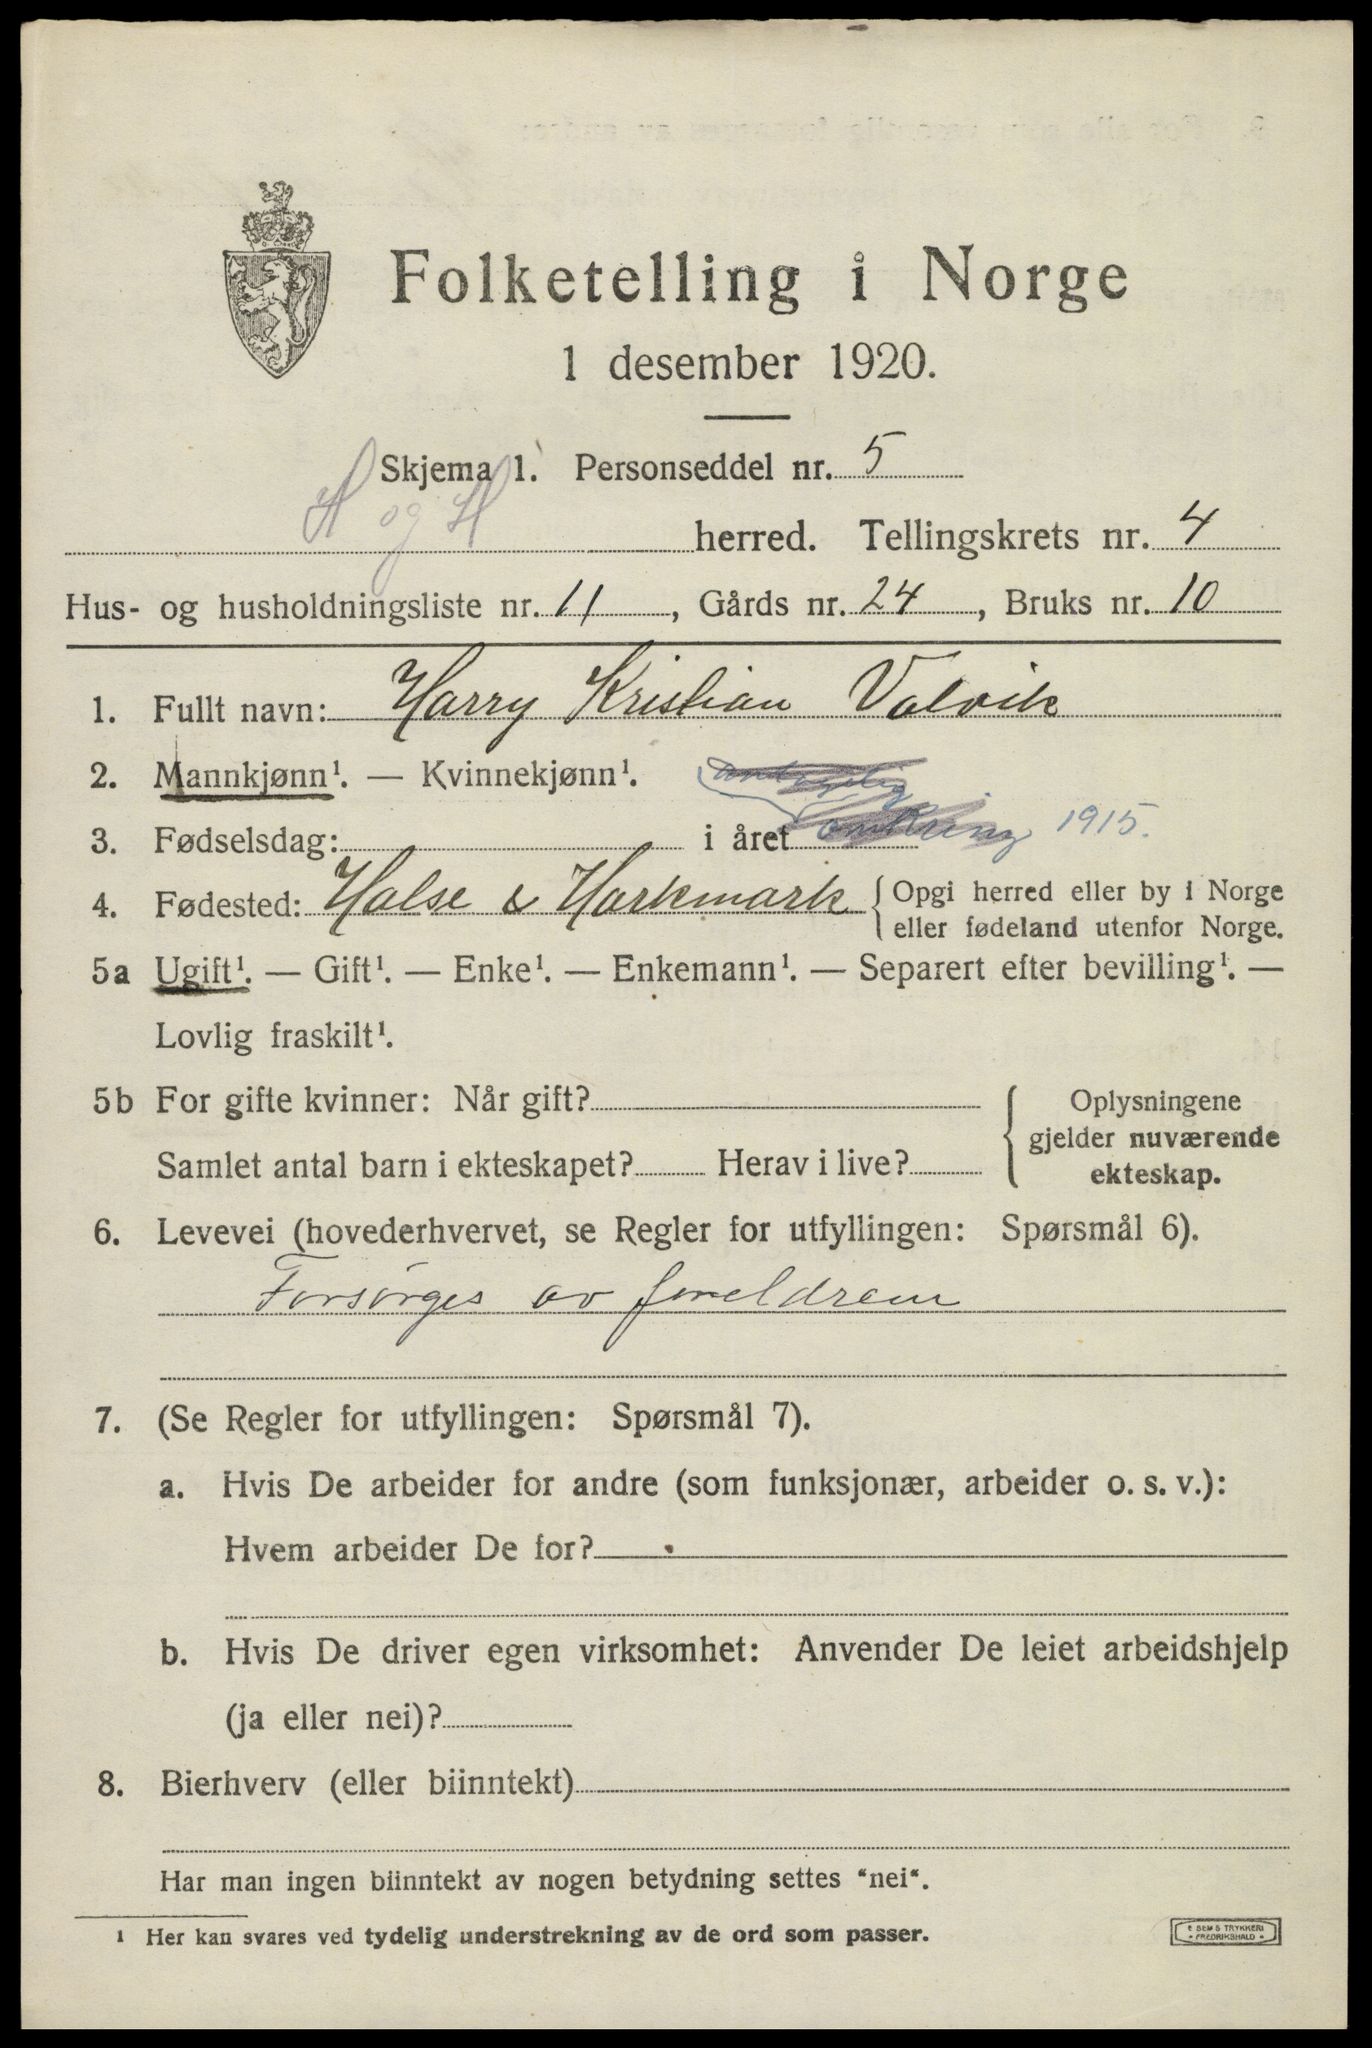 Folketelling i Norge
1 desember 1920.
Skjema 1. Personseddel nr. 5
H og H herred. Tellingskrets nr. 4
Hus- og husholdningsliste nr. 11, Gårds nr. 24, Bruks nr. 10
1. Fullt navn: Harry Kristian Valvik
2. Mannkjønn¹. — Kvinnekjønn¹. antagelig
3. Fødselsdag: i året omkring 1915.
4. Fødested: Halse & Harkmark { Opgi herred eller by i Norge
eller fødeland utenfor Norge.
5a Ugift¹. — Gift¹. — Enke¹. — Enkemann¹. — Separert efter bevilling¹. —
Lovlig fraskilt¹.
5b For gifte kvinner: Når gift? { Oplysningene
gjelder nuværende
Samlet antal barn i ekteskapet? Herav i live? ekteskap.
6. Levevei (hovederhvervet, se Regler for utfyllingen: Spørsmål 6).
Forsørges av foreldrene
7. (Se Regler for utfyllingen: Spørsmål 7).
a. Hvis De arbeider for andre (som funksjonær, arbeider o. s. v.):
Hvem arbeider De for?
b. Hvis De driver egen virksomhet: Anvender De leiet arbeidshjelp
(ja eller nei)?
8. Bierhverv (eller biinntekt)
Har man ingen biinntekt av nogen betydning settes “nei“.
¹ Her kan svares ved tydelig understrekning av de ord som passer.
E SEMS TRYKKERI
FREDRIKSHALD